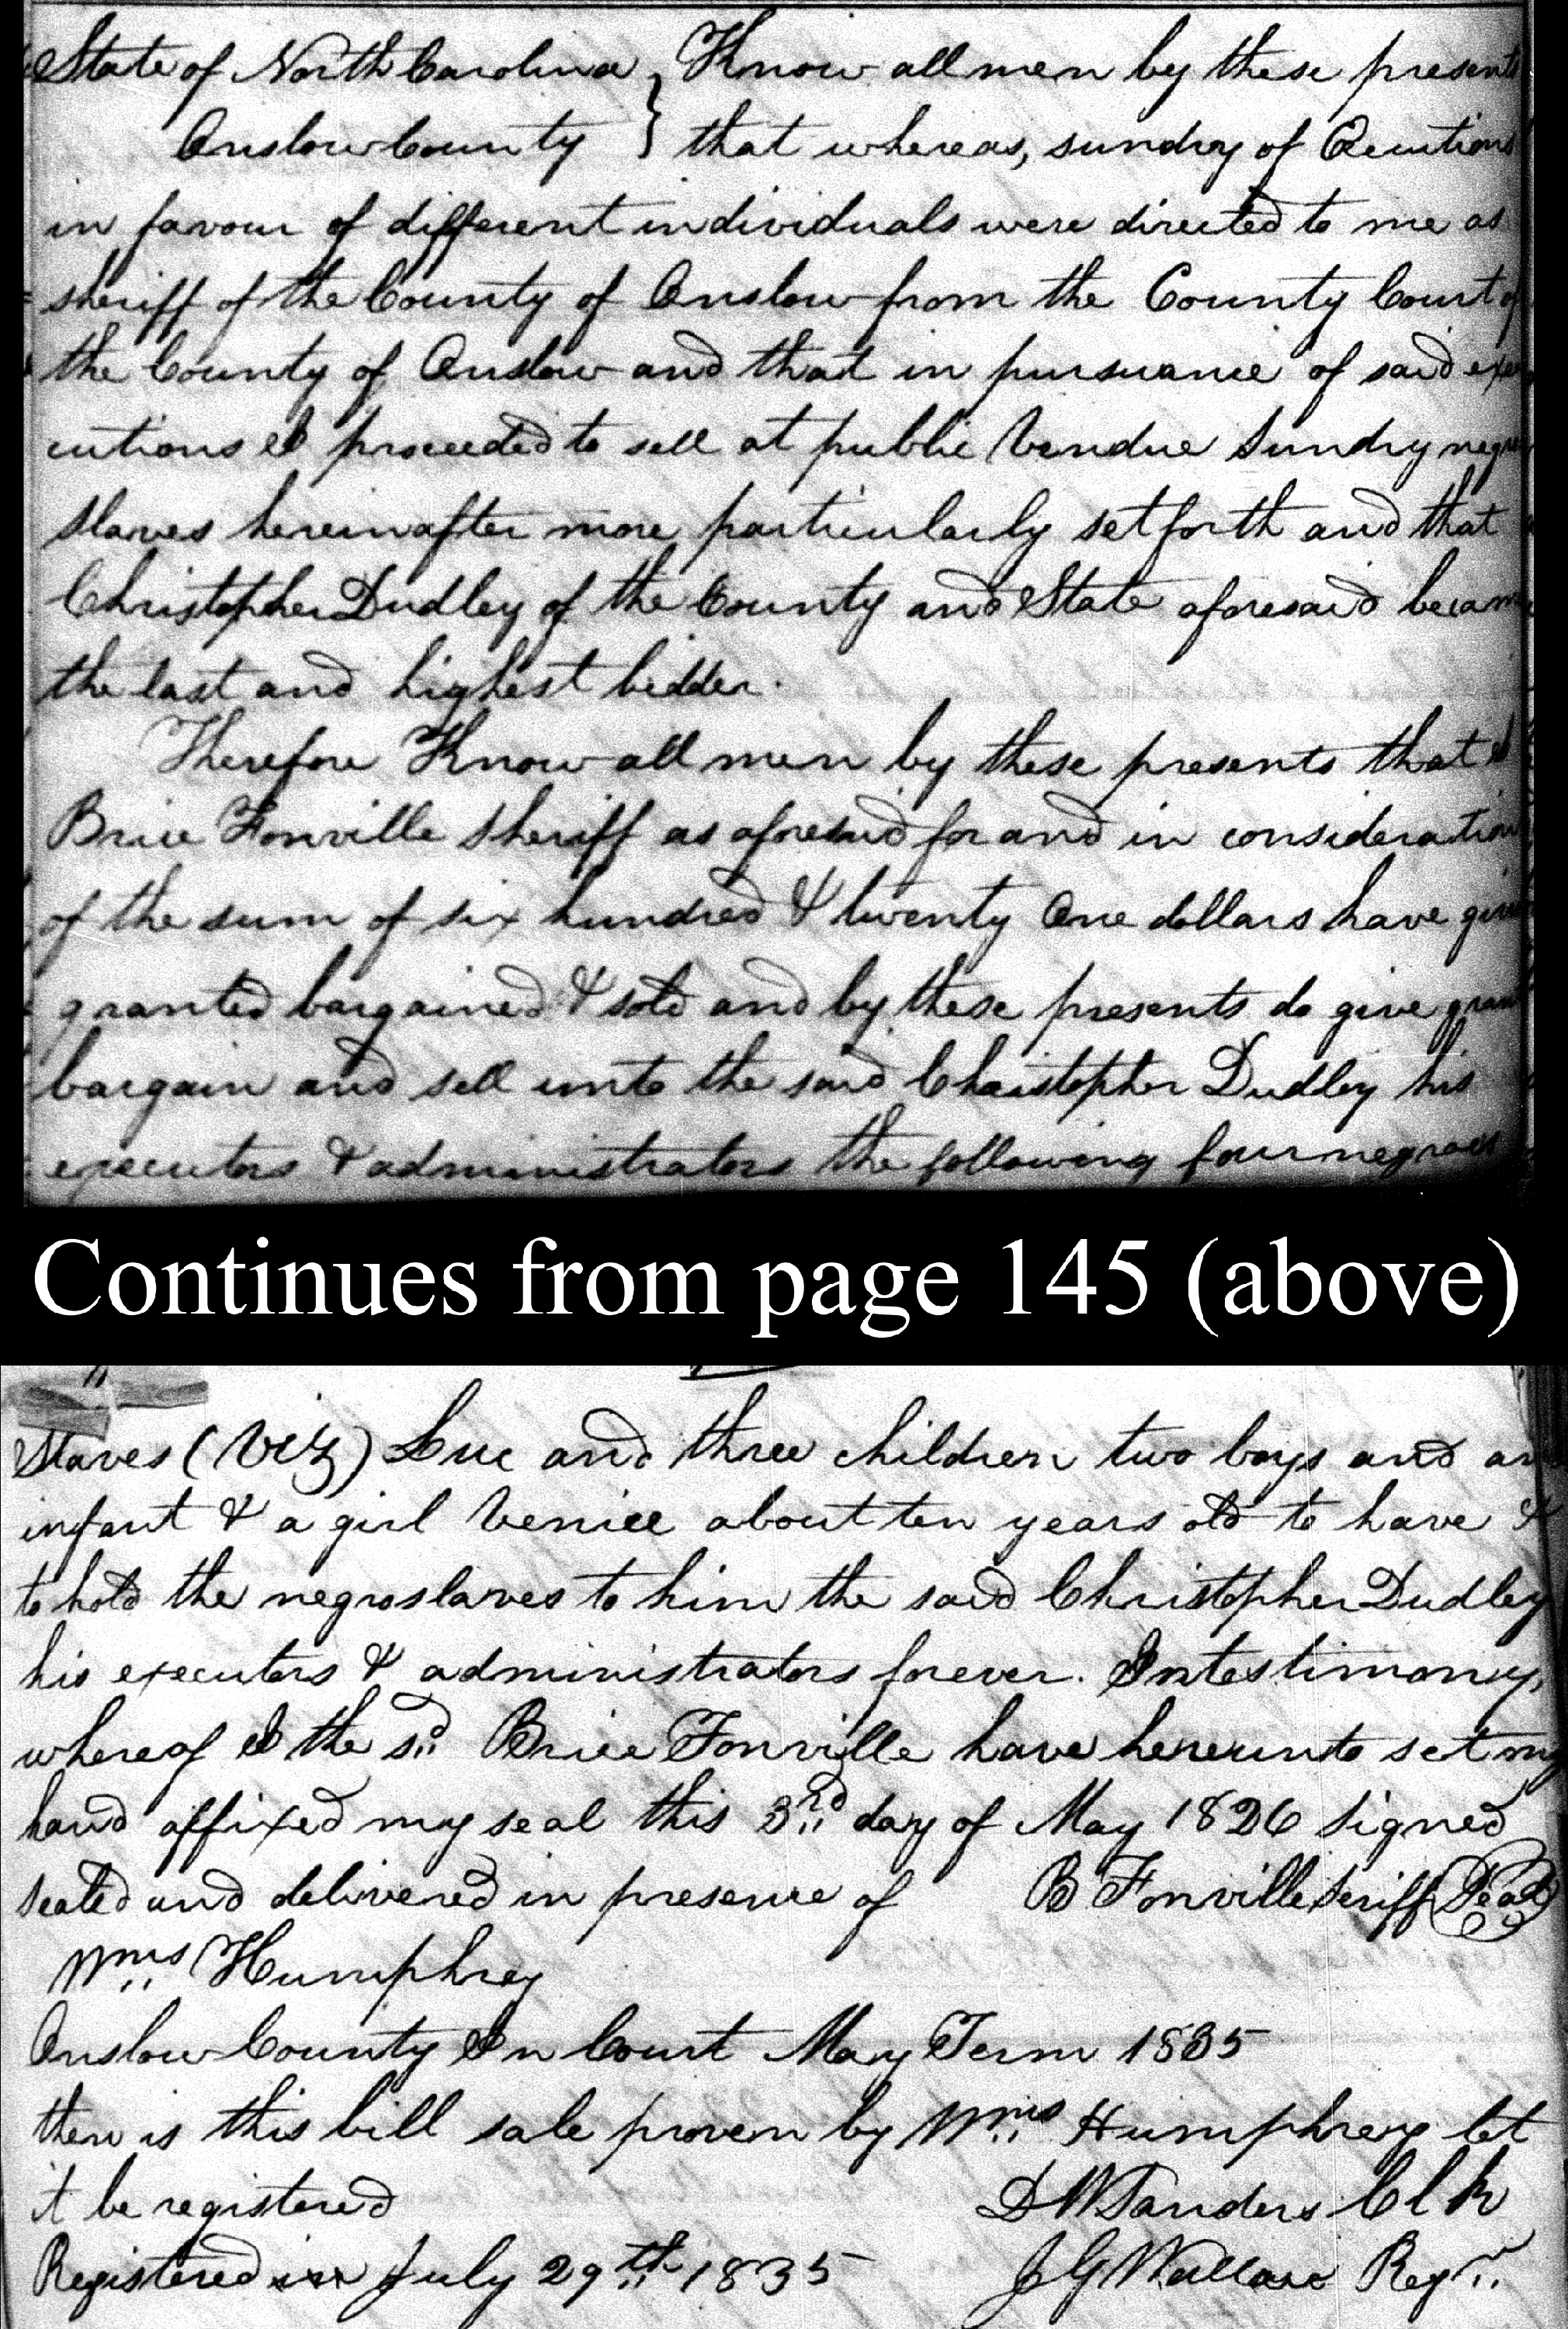 State of North Carolina } Know all men by these presents
Onslow County } that whereas, sundry of Executions
in favour of different individuals were directed to me as
sheriff of the County of Onslow from the County Court of
the County of Onslow and that in pursuance of said exe
cutions I proceeded to sell at public Vendue Sundry negro
slaves hereinafter more particularly set forth and that
Christopher Dudley of the County and State aforesaid became
the last and highest bidder.
Therefore Know all men by these presents that I
Brice Fonville Sheriff as aforesaid for and in consideration
of the sum of six hundred & twenty One dollars have given
granted bargained & sold and by these presents do give grant
bargain and sell unto the said Christopher Dudley his
executors & administrators the following four negroes
Continues from page 145 (above)
Slaves (Viz) Luc and three children two boys and an
infant & a girl Venice about ten years old to have &
to hold the negro slaves to him the said Christopher Dudley
his executors & administrators forever. In testimony,
whereof I the sd. Brice Fonville have hereunto set my
hand affixed my seal this 3rd day of May 1826 Signed
sealed and delivered in presence of B Fonville Seriff Seal
Wms Humphrey
Onslow County In Court May Term 1835
then is this bill sale proven by Wms Humphrey let
it be registered D W Sanders Clk
Registered July 29th 1835 J G Wallace Regr.